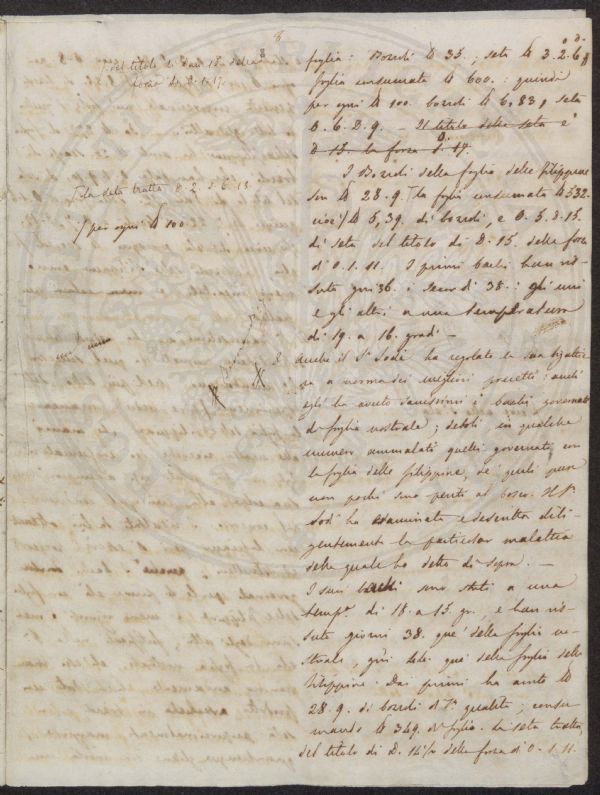 8
foglia: Bozzoli ℔ 35.; seta ℔ 3. 2. 6
foglia consumata ℔ 600.: quindi
per ogni ℔ 100. bozzoli ℔ 6,83, seta
0. 6. 2. 9. – Il titolo della seta è
D. 15. la forza 0. 17.
I Bozzoli della foglia delle filippine
son ℔ 28. 9. la foglia consumata ℔ 532.
cioè ℔ 5,39. di bozzoli, e 0. 5. 8. 15.
di seta del titolo di D. 15. della forza
di 0. 1. 11. I primi bachi han vis-
suto gni 36. i secondi 38.: gli uni
e gli altri a una temperatura
di 19. a 16. gradi –
Anche il Sr Sodi ha regolato la sua bigattie
ra a norma dei migliori precetti: anch'
egli ha avuto sanissimi i bachi governati
di foglia nostrale; deboli in qualche
numero ammalati quelli governati con
la foglia delle filippine, de' quali pure
non pochi sono periti al bosco. Il Sr
Sodi ha esaminata e descritta dili-
gentemente la particolar malattia
della quale ho detto di sopra. –
I suoi bachi sono stati a una
tempa di 18. a 15. gr., e han vis-
suto giorni 38. que' della foglia no-
strale, que' della foglia delle
filippine. Dai primi ha avuto ℔
28. 9. di bozzoli di 1a qualità; consu-
mando ℔ 349. di foglia. La seta tratta,
del titolo di D. 14½ della forza di 0. 1. 11.
del titolo di dani 15. della
forza di 0. 1. 17.
la seta tratta 0. 2. 5. 6. 13
per ogni ℔ 100